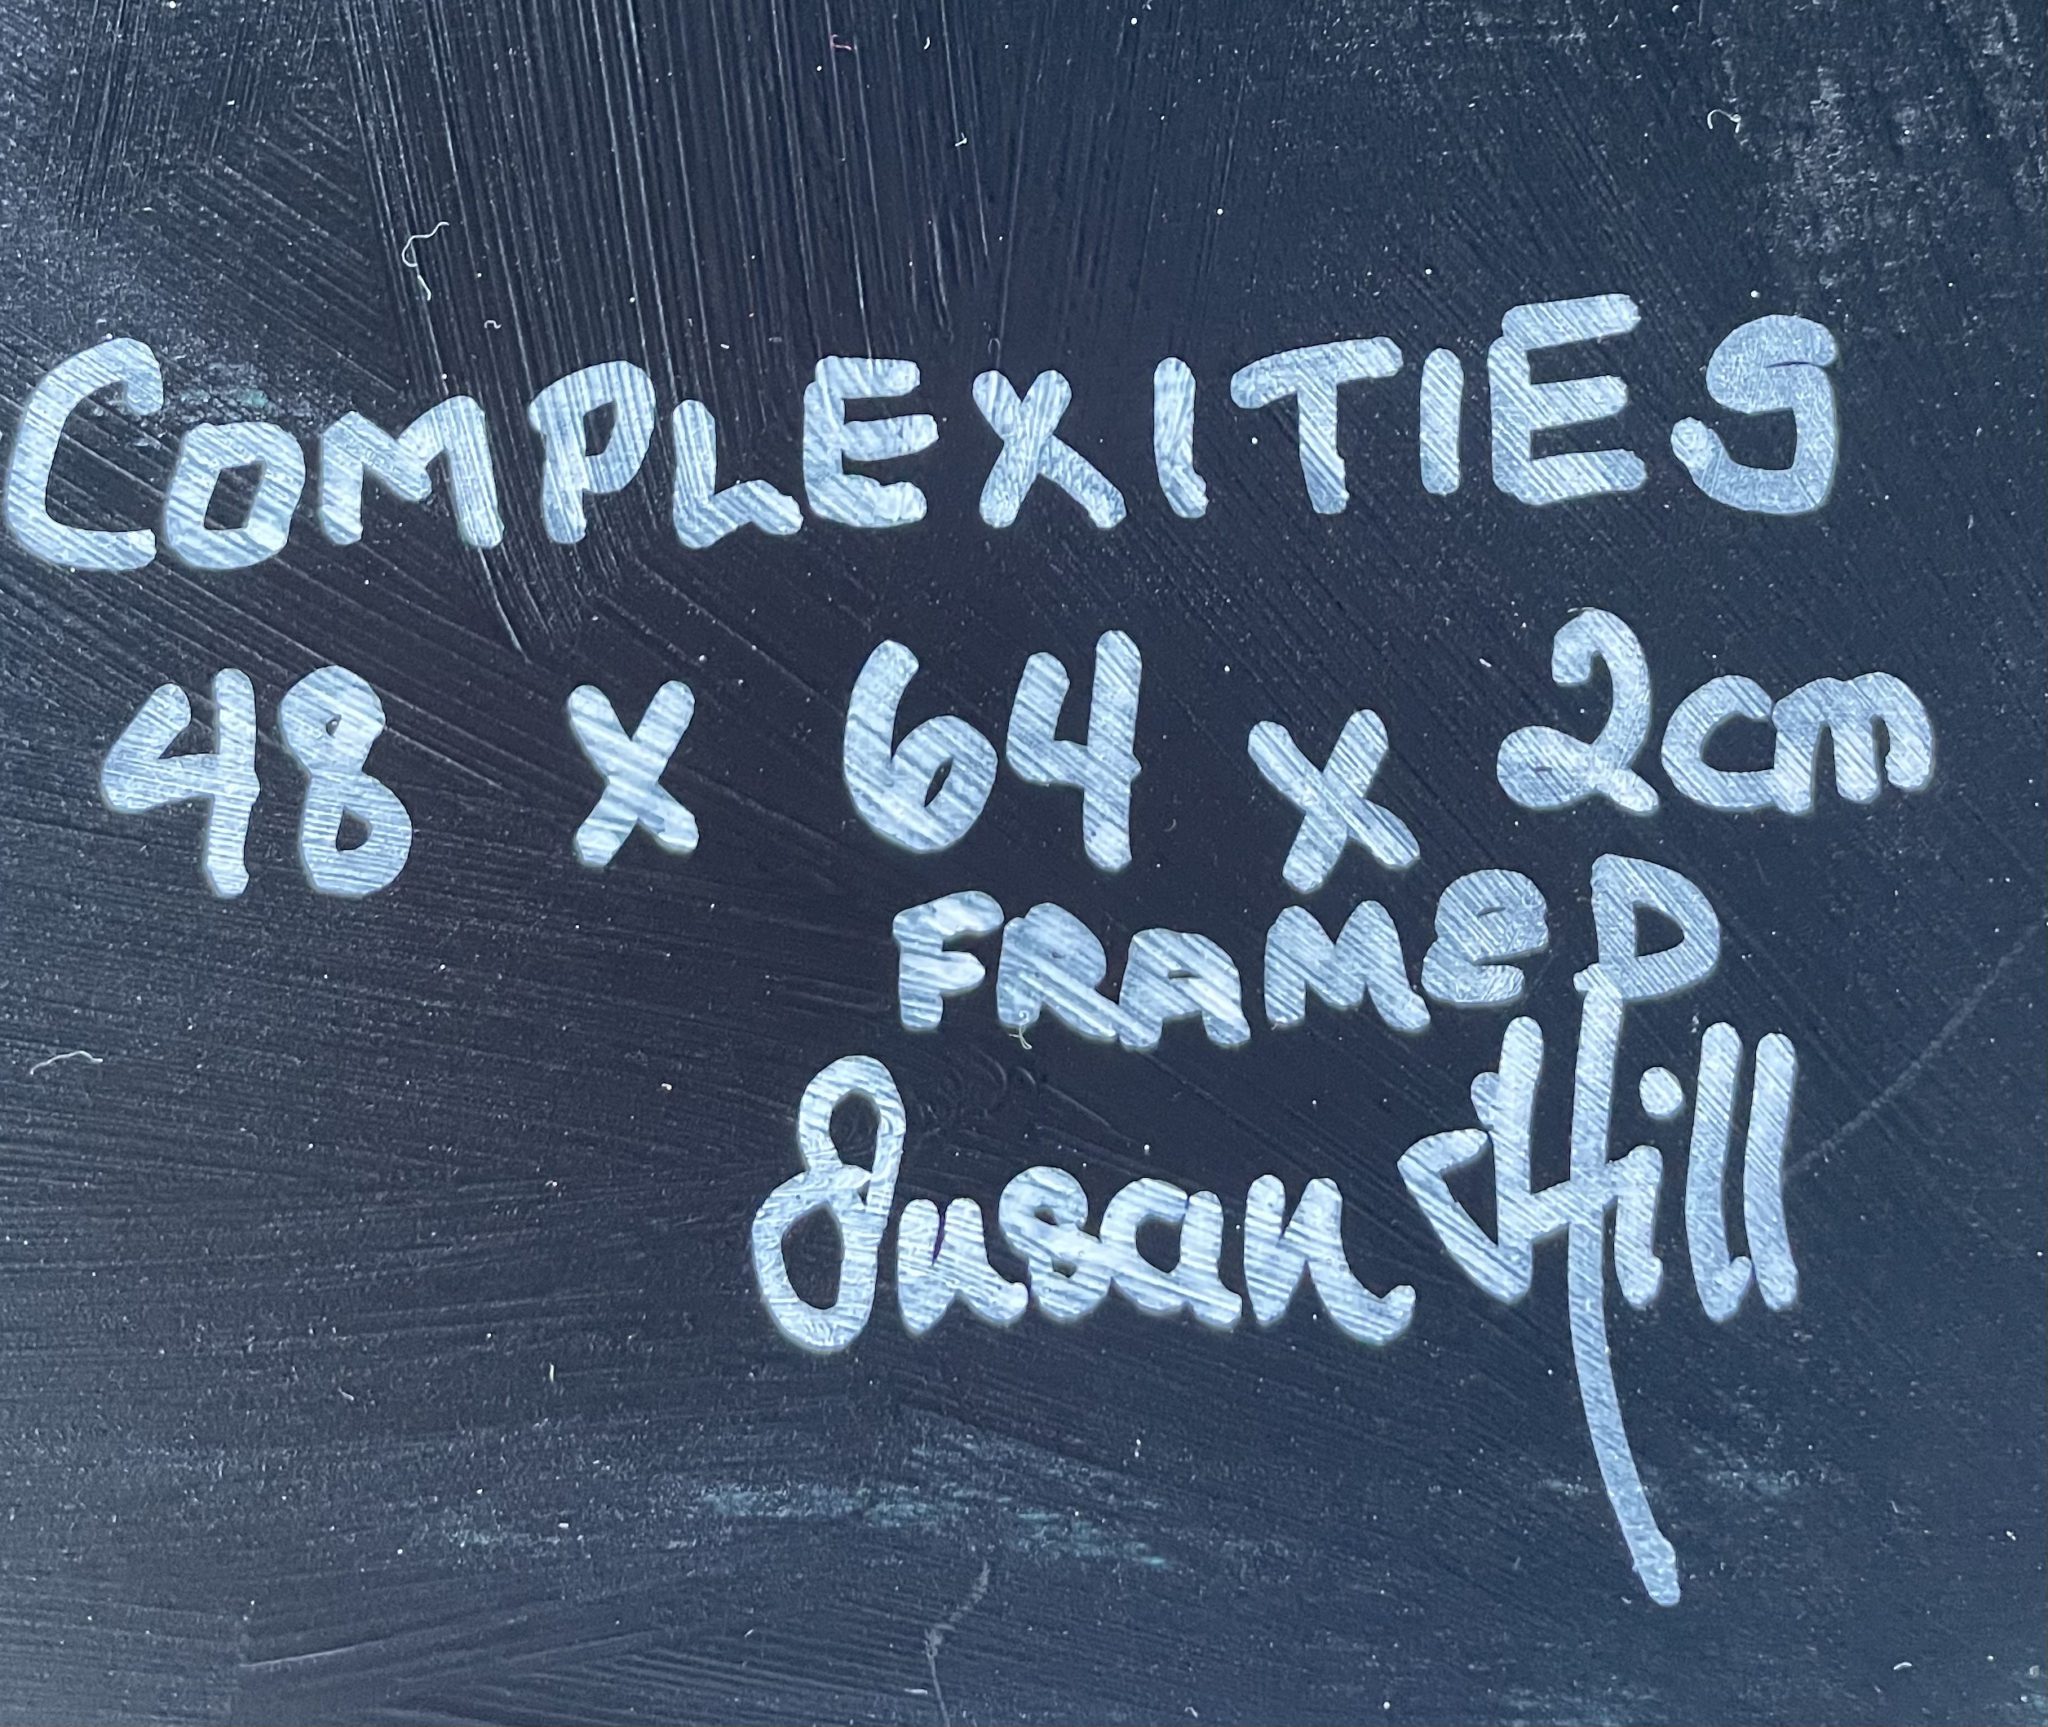 COMPLEXITIES
48 x 64 x 2cm
FRAMED
Susan Hill